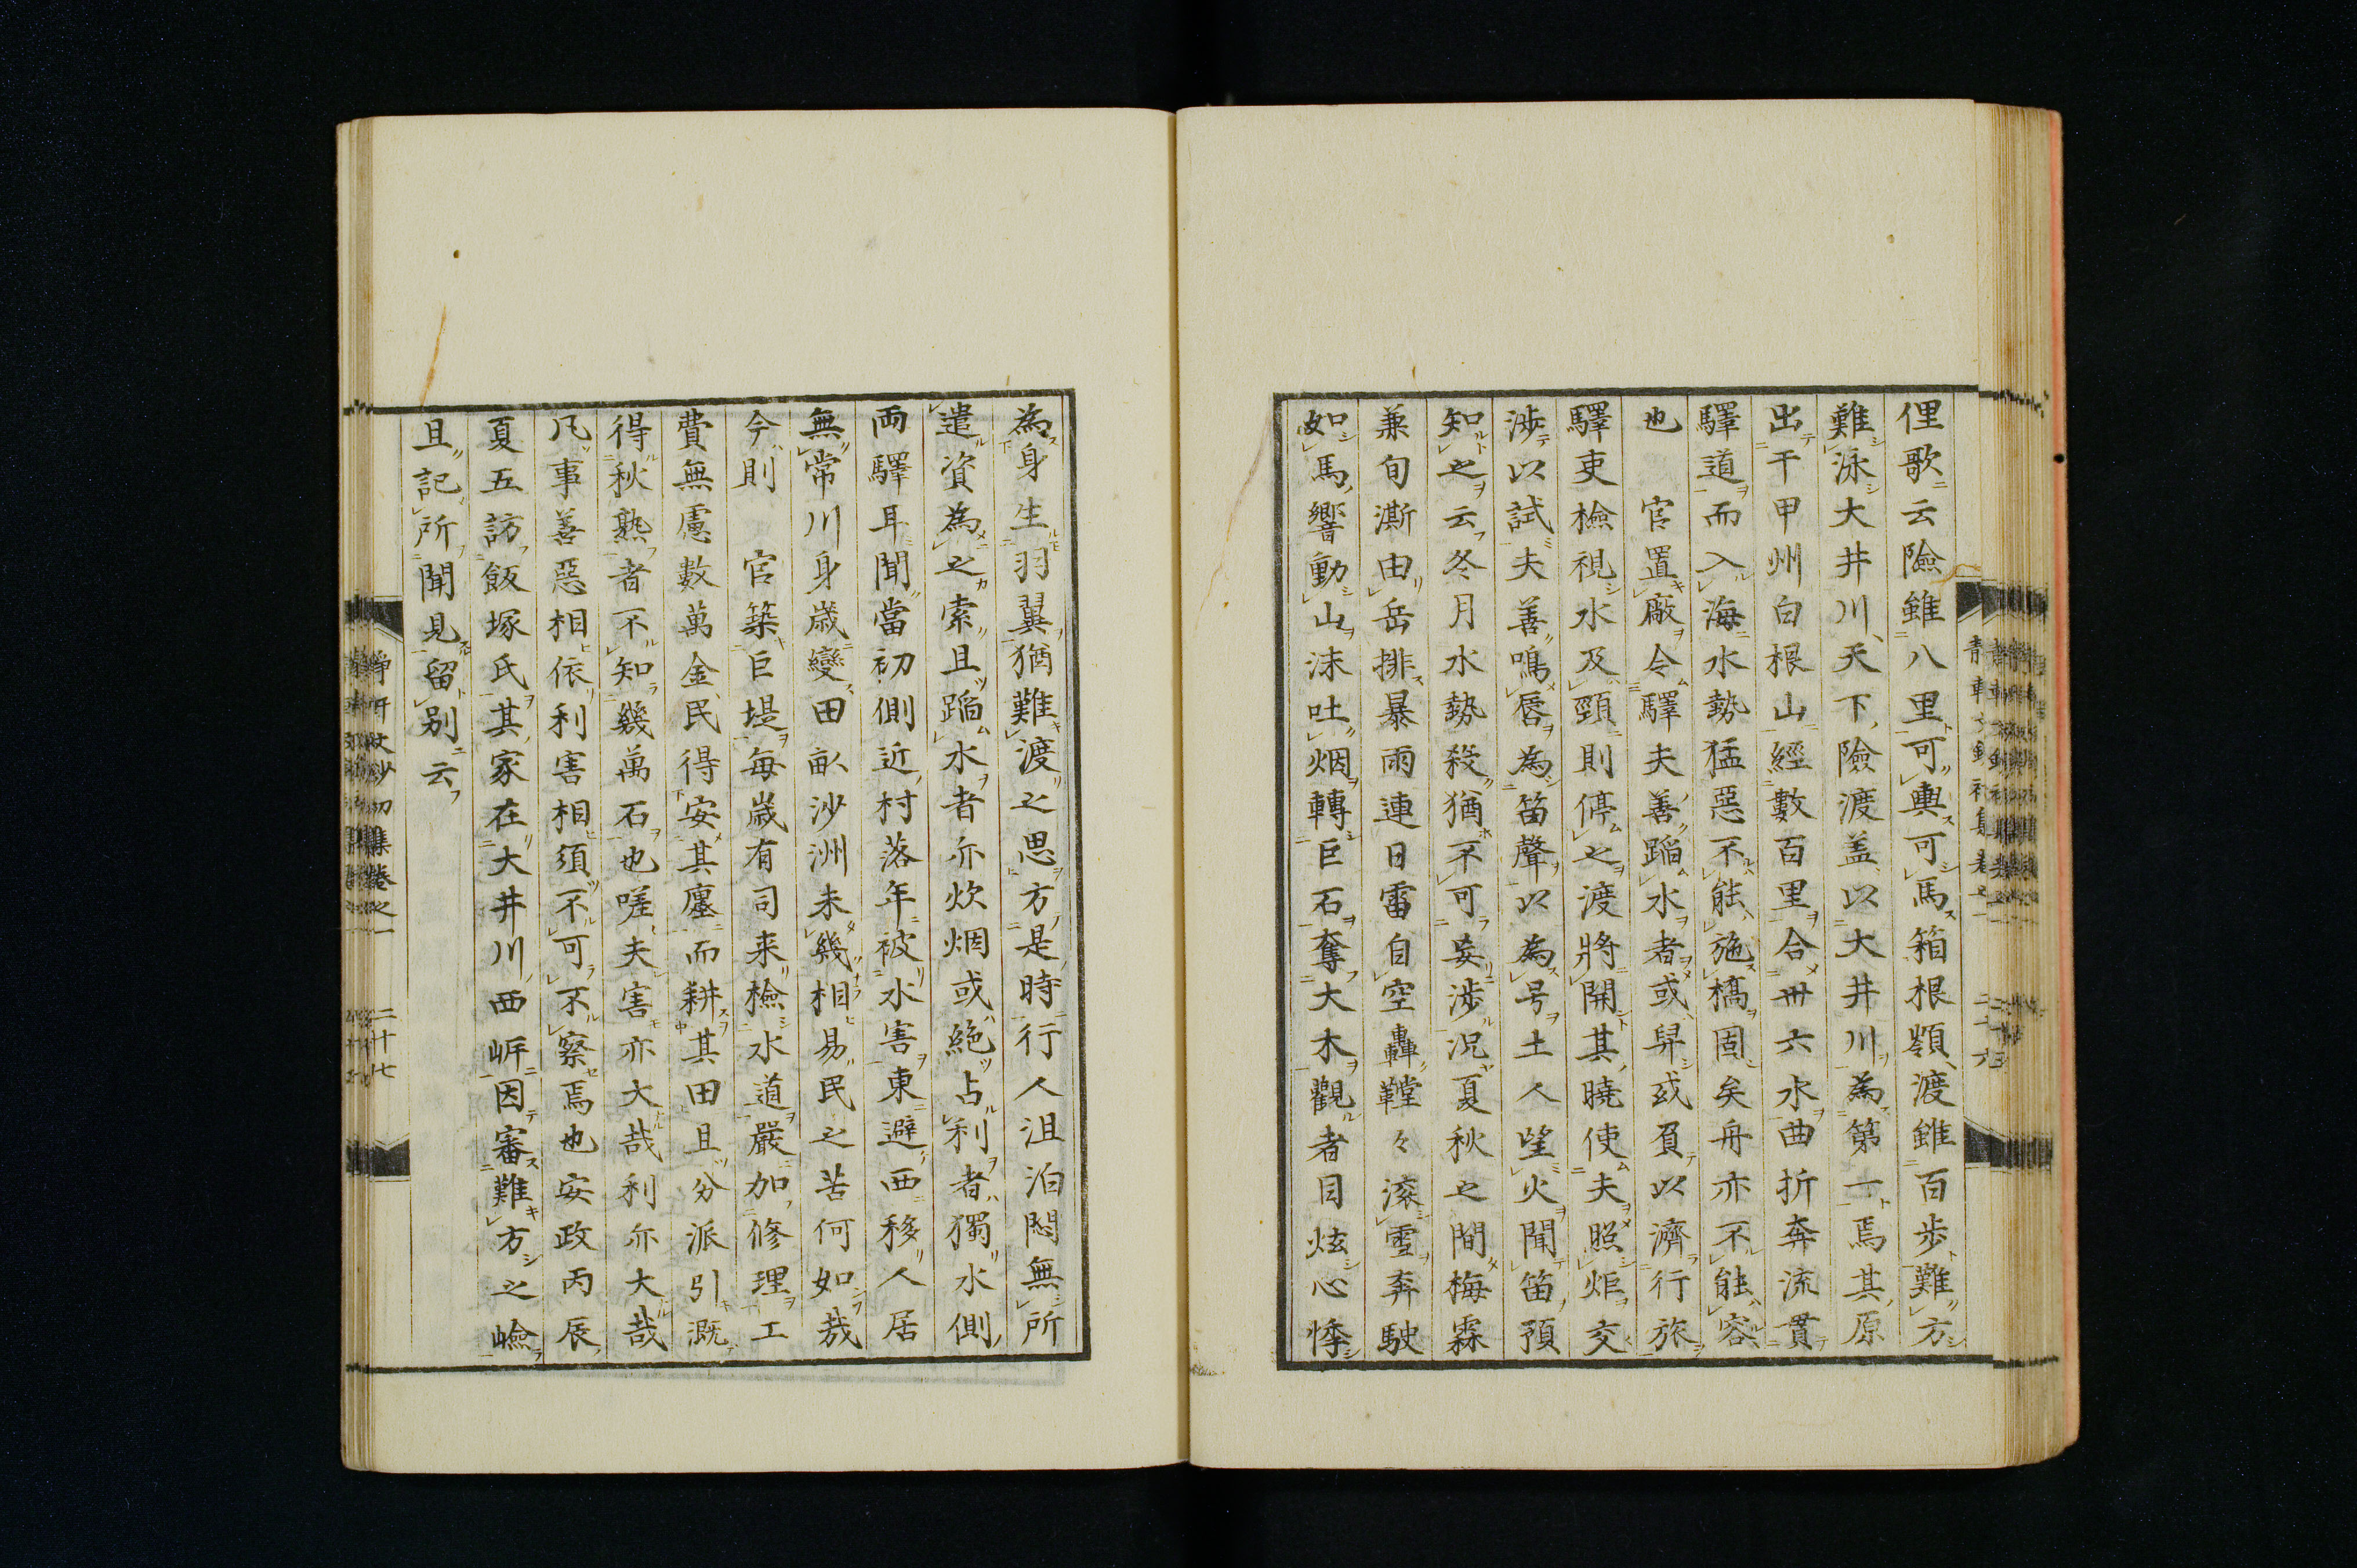 俚歌云險雖八里可輿可馬箱根嶺渡雖百歩難方
難泳大井川天下險渡盖以大井川為第一焉其原
出干甲州白根山經數百里合卌六水曲折奔流貫
驛道而入海水勢猛惡不能施橋固矣舟亦不能容
也　官置廠令驛夫善蹈水者或舁或負以濟行旅
驛吏檢視水及頸則停之渡將開其曉使夫照炬交
渉以試夫善鳴唇為笛聲以為号土人望火聞笛預
知之云冬月水勢殺猶不可妄渉况夏秋之間梅霖
兼旬澌由岳排暴雨連日雷自空轟鞺々滚雪奔駛
如馬響動山沫吐烟轉巨石奪大木觀者目炫心悸
為身生羽翼猶難渡之思方是時行人沮泊悶無所
遣資為之索且蹈水者亦炊烟或絶占利者獨水側
両驛耳聞當初側近村落年被水害東避西移人居
無常川身歳變田畝沙洲未幾相易民之苦何如哉
今則　官築巨堤毎歳有司来檢水道嚴加修理工
費無慮數萬金民得安其廛而耕其田且分派引漑
得秋熟者不知幾萬石也嗟夫害亦大哉利亦大哉
凡事善惡相依利害相須不可不察焉也安政丙辰
夏五訪飯塚氏其家在大井川西岍因審難方之嶮
且記所聞見留別云
二十七